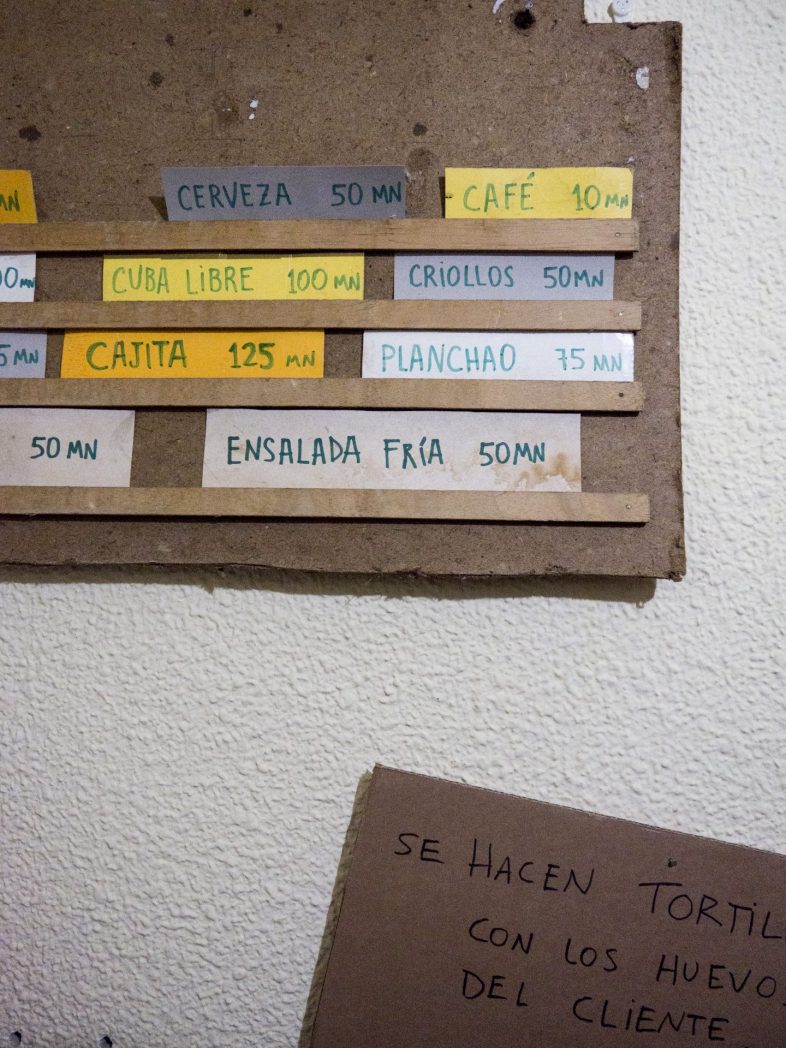 MN CERVEZA 50 MN CAFÉ 10 MN
00 MN CUBA LIBRE 100 MN CRIOLLOS 50 MN
5 MN CAJITA 125 MN PLANCHAO 75 MN
50 MN ENSALADA FRÍA 50 MN
SE HACEN TORTIL
CON LOS HUEVOS
DEL CLIENTE